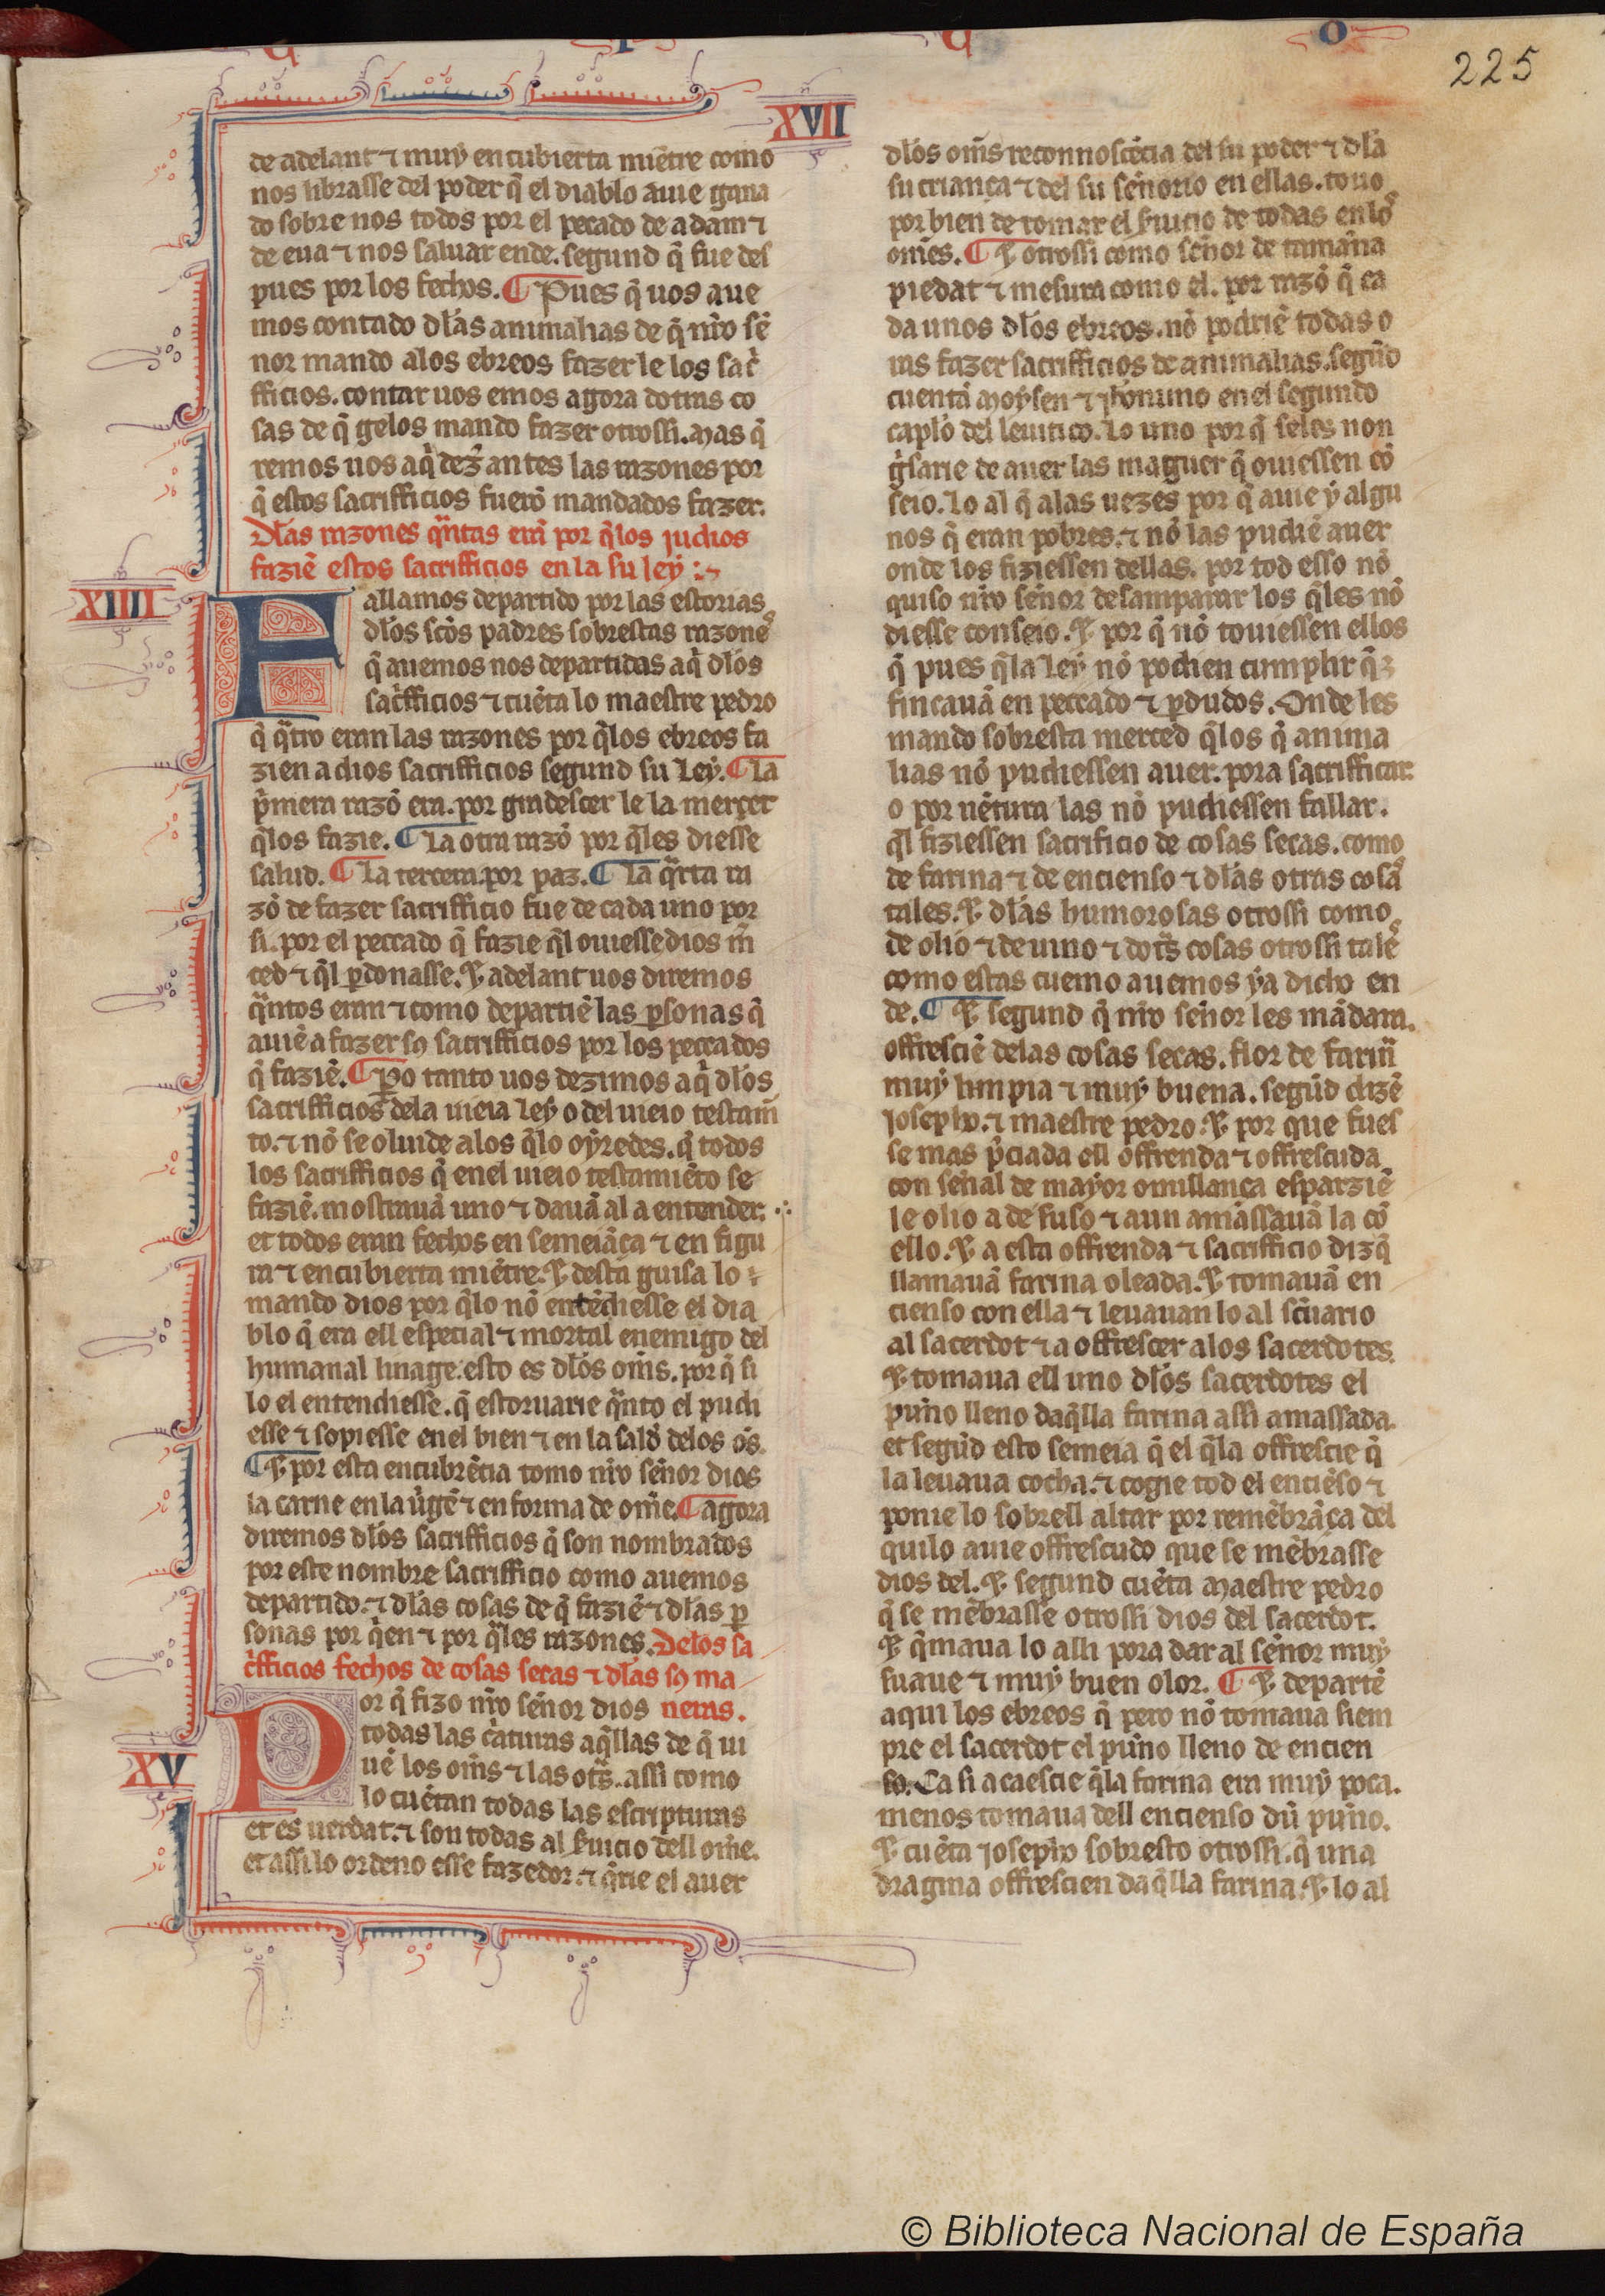 225
XVII
de adelant ⁊ muy encubierta miẽtre como
nos librasse del poder q̃ el diablo auie gana
do sobre nos todos por el peccado de adam ⁊
de eua ⁊ nos saluar ende. segund q̃ fue des
pues por los fechos. ¶ Pues q̃ uos aue
mos contado dlas animalias de q̃ nr̃o sẽ
nor mando alos ebreos fazer le los sacͥ
fficios. contar uos emos agora dotras co
sas de q̃ gelos mando fazer otrossi. Mas q̃
remos uos aq̃ dez̃ antes las razones por
q̃ estos sacrifficios fuerõ mandados fazer.
Dlas razones q̃ntas erã por q̃los judios
faziẽ estos sacrifficios en la su ley :~
XIIII
Fallamos departido por las estorias
dlos sc̃os padres sobrestas razones
q̃ auemos nos departidas aq̃ dlos
sac̃fficios ⁊ cuẽta lo maestre pedro
q̃ q̃tro eran las razones por q̃los ebreos fa
zien a dios sacrifficios segund su Ley. ¶ La
p̃mera razõ era. por gradescer le la mercet
q̃los fazie. ¶ La otra razõ por q̃les diesse
salud. ¶ La tercera. por paz. ¶ La q̃rta ra
zõ de fazer sacrifficio fue de cada uno por
si. por el peccado q̃ fazie q̃l ouiesse dios m̃
ced ⁊ q̃l ꝑdonasse. ⁊ adelant uos diremos
q̃ntos eran ⁊ como departiẽ las ꝑsonas q̃
auiẽ a fazer sꝯ sacrifficios por los peccados
q̃ faziẽ. ¶ Po tanto uos dezimos aq̃ dlos
sacrifficios dela uieia Ley o del uieio testam̃
to. ⁊ nõ se oluide alos q̃lo oyredes. q̃ todos
los sacrifficios q̃ enel uieio testamiẽto se
faziẽ. mostrauã uno ⁊ dauã al a entender.
et todos eran fechos en semeiãça ⁊ en figu
ra ⁊ encubierta miẽtre. ⁊ desta guisa lo
mando dios por q̃lo nõ entẽdiesse el dia
blo q̃ era ell especial ⁊ mortal enemigo del
humanal linage. esto es dlos om̃s. por q̃ si
lo el entendiesse. q̃ estoruarie q̃nto el pudi
esse ⁊ sopiesse enel bien ⁊ en la salud delos om̃s.
¶ ⁊ por esta encubrẽcia tomo nr̃o señor dios
la carne en la uirgẽ ⁊ en forma de om̃e. ¶ agora
diremos dlos sacrifficios q̃ son nombrados
por este nombre sacrifficio como auemos
departido. ⁊ dlas cosas de q̃ faziẽ ⁊ dlas ꝑ
sonas por q̃en ⁊ por q̃les razones. Delos sa
c̃fficios fechos de cosas secas ⁊ dlas sꝯ ma
neras.
XV
Por q̃ fizo nr̃o señor dios
todas las c̃aturas aq̃llas de q̃ ui
uẽ los om̃s ⁊ las otr̃s. assi como
lo cuẽtan todas las escripturas
et es uerdat. ⁊ son todas al ẜuicio dell om̃e.
et assi lo ordeno esse fazedor. ⁊ q̃rie el auer
dlos om̃s reconnoscẽcia del su poder ⁊ dla
su criança ⁊ del su señorio en ellas. touo
por bien de tomar el ẜuicio de todas en los
om̃es. ¶ ⁊ otrossi como señor de tamaña
piedat ⁊ mesura como el. por razõ q̃ ca
da unos dlos ebreos. nõ podriẽ todas o
ras fazer sacrifficios de animalias. segũd
cuenta Moysen ⁊ iheronimo en el segundo
capl̃o del leuitico. Lo uno por q̃ seles non
g̃sarie de auer las maguer q̃ ouiessen cõ
seio. Lo al q̃ alas uezes por q̃ auie y algu
nos q̃ eran pobres. ⁊ nõ las pudiẽ auer
onde los fiziessen dellas. por tod esso nõ
quiso nr̃o señor desamparar los q̃les nõ
diesse conseio. ⁊ por q̃ nõ touiessen ellos
q̃ pues q̃la Ley nõ podien cumplir q̃
fincauã en peccado ⁊ ꝑdudos. Onde les
mando sobresta merced q̃los q̃ anima
lias nõ pudiessen auer. pora sacrifficar.
o por uẽtura las nõ pudiessen fallar.
q̃l fiziessen sacrificio de cosas secas. como
de farina ⁊ de encienso ⁊ dlas otras cosas
tales. ⁊ dlas humorosas otrossi como
de olio ⁊ de uino ⁊ dotr̃s cosas otrossi tales
como estas cuemo auemos ya dicho en
de. ¶ ⁊ segund q̃ nr̃o señor les mãdara.
offresciẽ delas cosas secas. flor de farin̄
muy limpia ⁊ muy buena. segũd dizẽ
Josepho. ⁊ maestre pedro. ⁊ por que fues
se mas p̃ciada ell offrenda ⁊ offrescuda
con señal de mayor omillança esparziẽ
le olio a de suso ⁊ aun amassauã la cõ
ello. ⁊ a esta offrenda ⁊ sacrifficio dizq̃
llamauã farina oleada. ⁊ tomauã en
cienso con ella ⁊ leuauan lo al sc̃uario
al sacerdot ⁊ a offrescer alos sacerdotes.
⁊ tomaua ell uno dlos sacerdotes el
puño lleno daq̃lla farina assi amassada.
et segũd esto semeia q̃ el q̃la offrescie q̃
la leuaua cocha. ⁊ cogie tod el enciẽso ⁊
ponie lo sobrell altar por remẽbrãça del
quilo auie offrescudo que se mẽbrasse
dios del. ⁊ segund cuẽta Maestre pedro
q̃ se mẽbrasse otrossi dios del sacerdot.
⁊ q̃maua lo alli pora dar al señor muy
suaue ⁊ muy buen olor. ¶ ⁊ departẽ
aqui los ebreos q̃ pero nõ tomaua siem
pre el sacerdot el puño lleno de encien
so. Ca si acaescie q̃la farina era muy poca.
menos tomaua dell encienso dũ puño.
⁊ cuẽta Josepho sobresto otrossi. q̃ una
dragma offrescien daq̃lla farina. ⁊ lo al
© Biblioteca Nacional de España